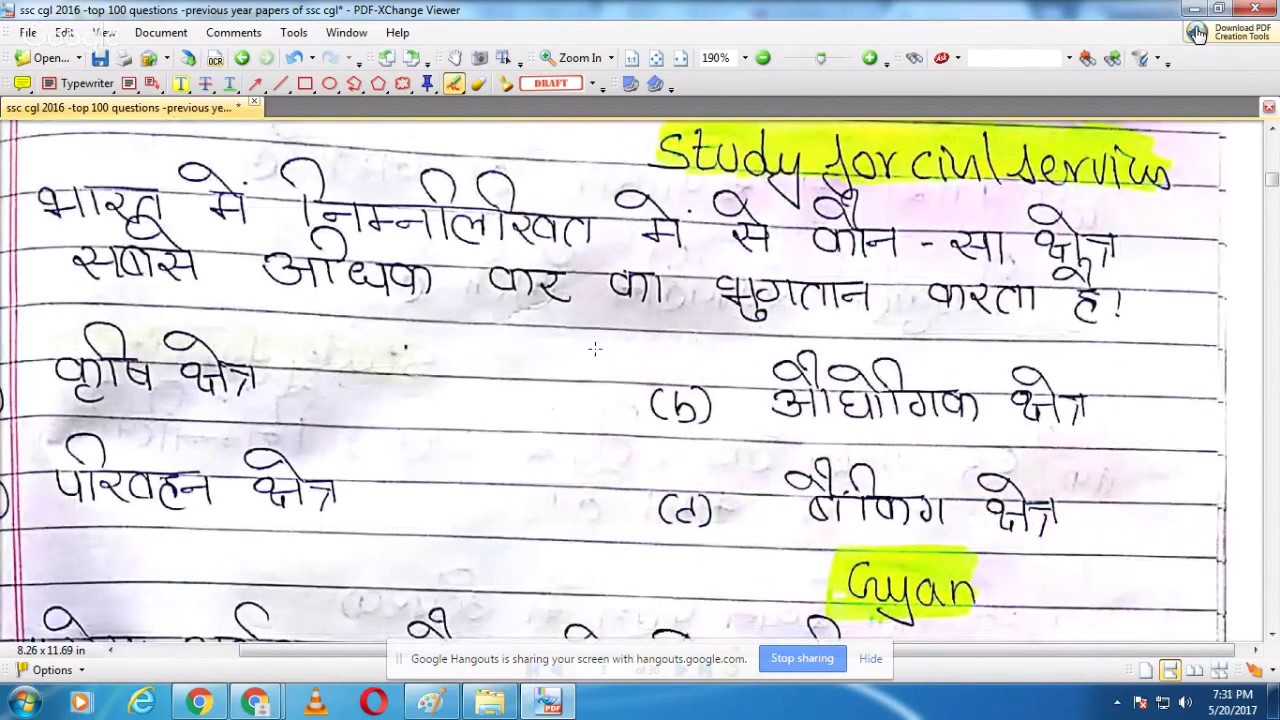 ssc cgl 2016 -top 100 questions -previous year papers of ssc cgl* - PDF-XChange Viewer
File Edit View Document Comments Tools Window Help
Google
Download PDF
Creation Tools
Open... OCR Zoom In 190%
Typewriter DRAFT
ssc cgl 2016 -top 100 questions -previous ye... *
Study for civil services
भारत में निम्नलिखित में से कौन - सा क्षेत्र
सबसे अधिक कर का भुगतान करता है।
कृषि क्षेत्र (b) औद्योगिक क्षेत्र
परिवहन क्षेत्र (d) बैंकिंग क्षेत्र
Gyan
8.26 x 11.69 in
Google Hangouts is sharing your screen with hangouts.google.com. Stop sharing Hide
Options
7:31 PM
5/20/2017